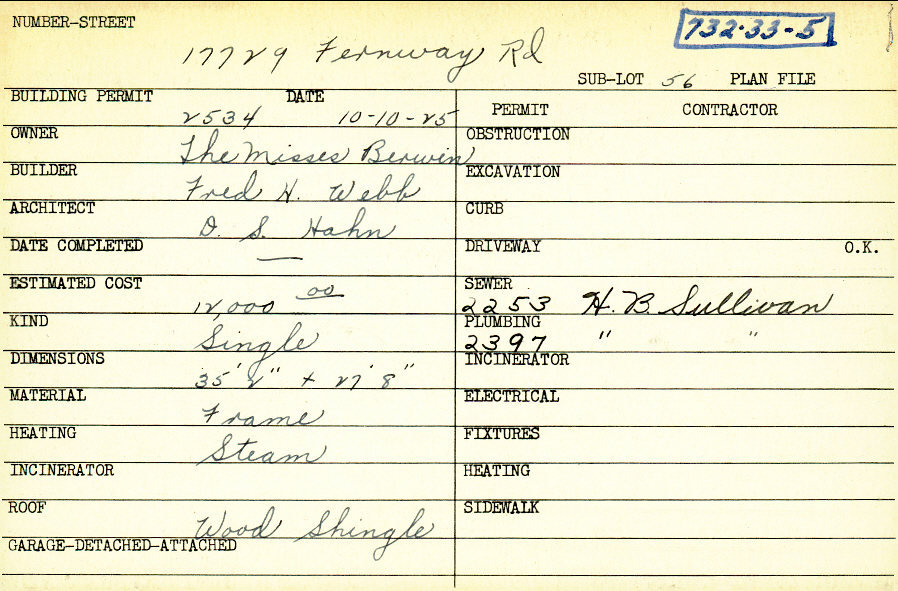 NUMBER-STREET
732-33-5
17729 Fernway Rd
SUB-LOT 56 PLAN FILE
BUILDING PERMIT 2534 DATE 10-10-25
PERMIT CONTRACTOR
OWNER The Misses Berwin
OBSTRUCTION
BUILDER Fred H. Webb
EXCAVATION
ARCHITECT D. S. Hahn
CURB
DATE COMPLETED —
DRIVEWAY O.K.
ESTIMATED COST 12,000 00
SEWER 2253 H. B. Sullivan
KIND Single
PLUMBING 2397 " "
DIMENSIONS 35' 2" x 27' 8"
INCINERATOR
MATERIAL Frame
ELECTRICAL
HEATING Steam
FIXTURES
INCINERATOR
HEATING
ROOF Wood Shingle
SIDEWALK
GARAGE-DETACHED-ATTACHED